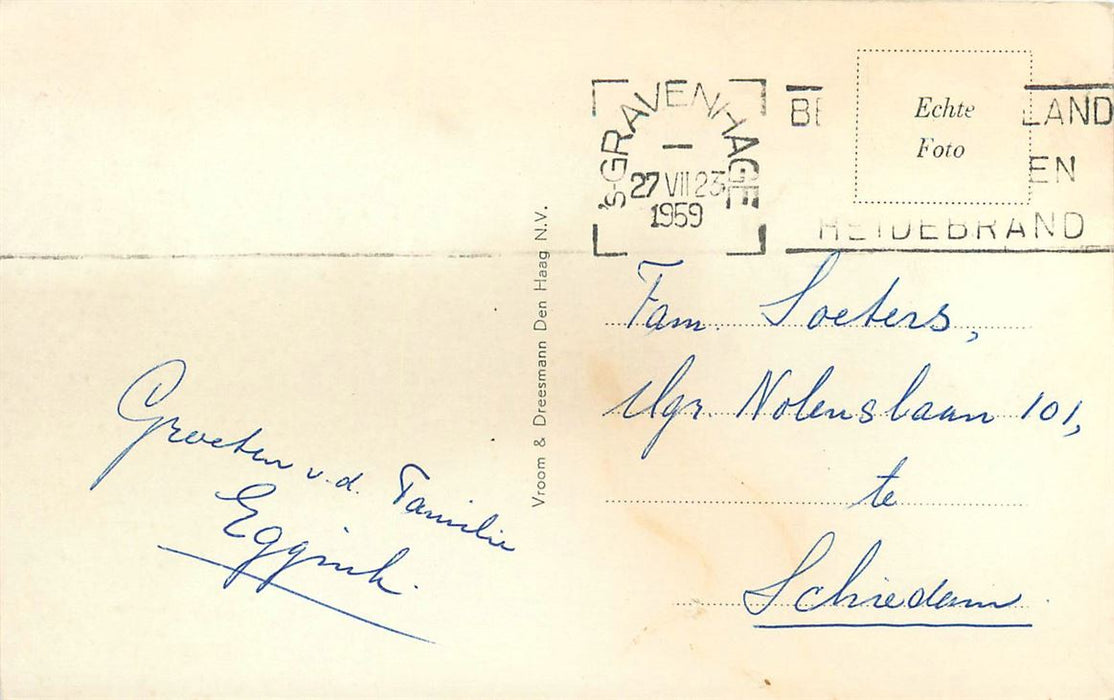 's-GRAVENHAGE
27 VII 23
1959
LAND
EN
HEIDEBRAND
Echte
Foto
Vroom & Dreesmann Den Haag N.V.
Groeten v.d. Familie
Eggink.
Fam. Soeters,
Mgr. Nolenslaan 101,
te
Schiedam